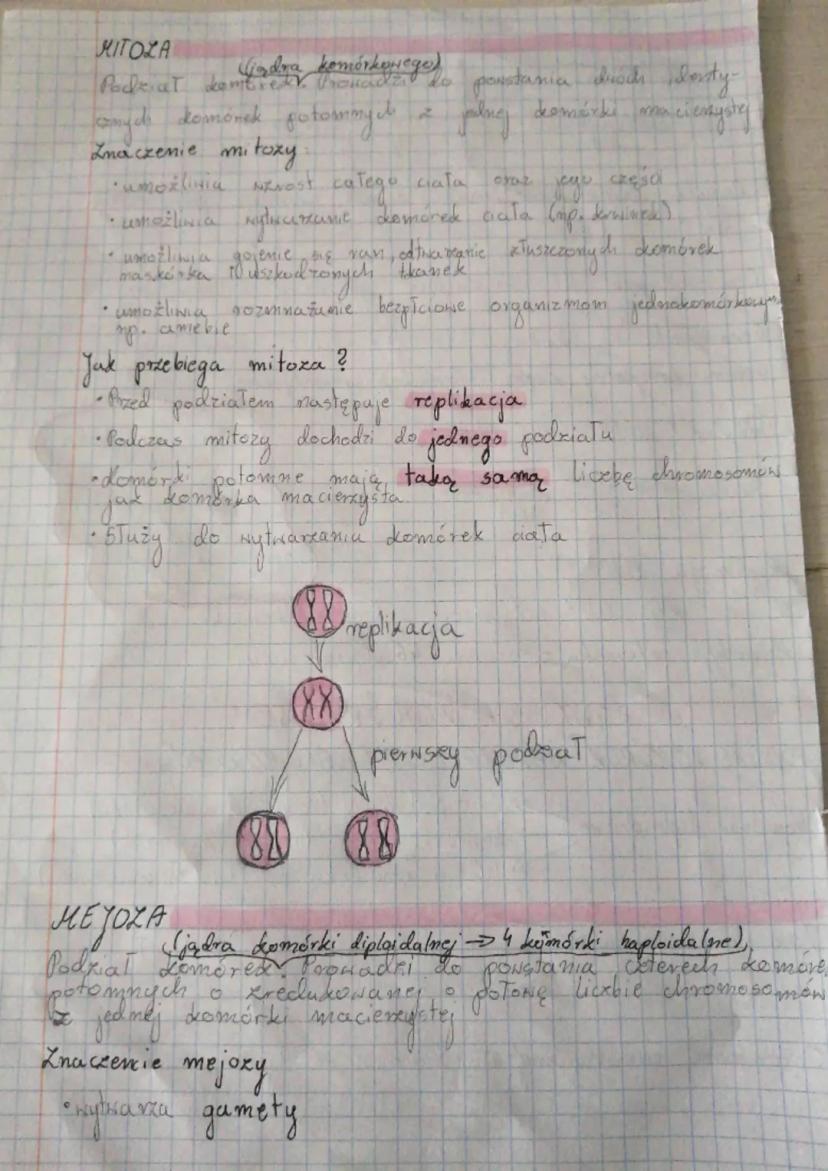 MITOZA
(jądra komórkowego)
Podział komórek. Prowadzi do powstania dwóch identy-
cznych komórek potomnych z jednej komórki macierzystej
Znaczenie mitozy:
• umożliwia wzrost całego ciała oraz jego części
• umożliwia wytwarzanie komórek ciała (np. krwinek)
• umożliwia gojenie się ran, odtwarzanie złuszczonych komórek
naskórka uszkodzonych tkanek
• umożliwia rozmnażanie bezpłciowe organizmom jednokomórkowym
np. amebie
Jak przebiega mitoza?
• Przed podziałem następuje replikacja
• Podczas mitozy dochodzi do jednego podziału
• komórki potomne mają taką samą liczbę chromosomów
jak komórka macierzysta.
• Służy do wytwarzaniu komórek ciała
replikacja
pierwszy podział
MEJOZA
(jądra komórki diploidalnej → 4 komórki haploidalne)
Podział komórek. Prowadzi do powstania czterech komóre
potomnych o zredukowanej o połowę liczbie chromosomów
z jednej komórki macierzystej
Znaczenie mejozy
• wytwarza gamety